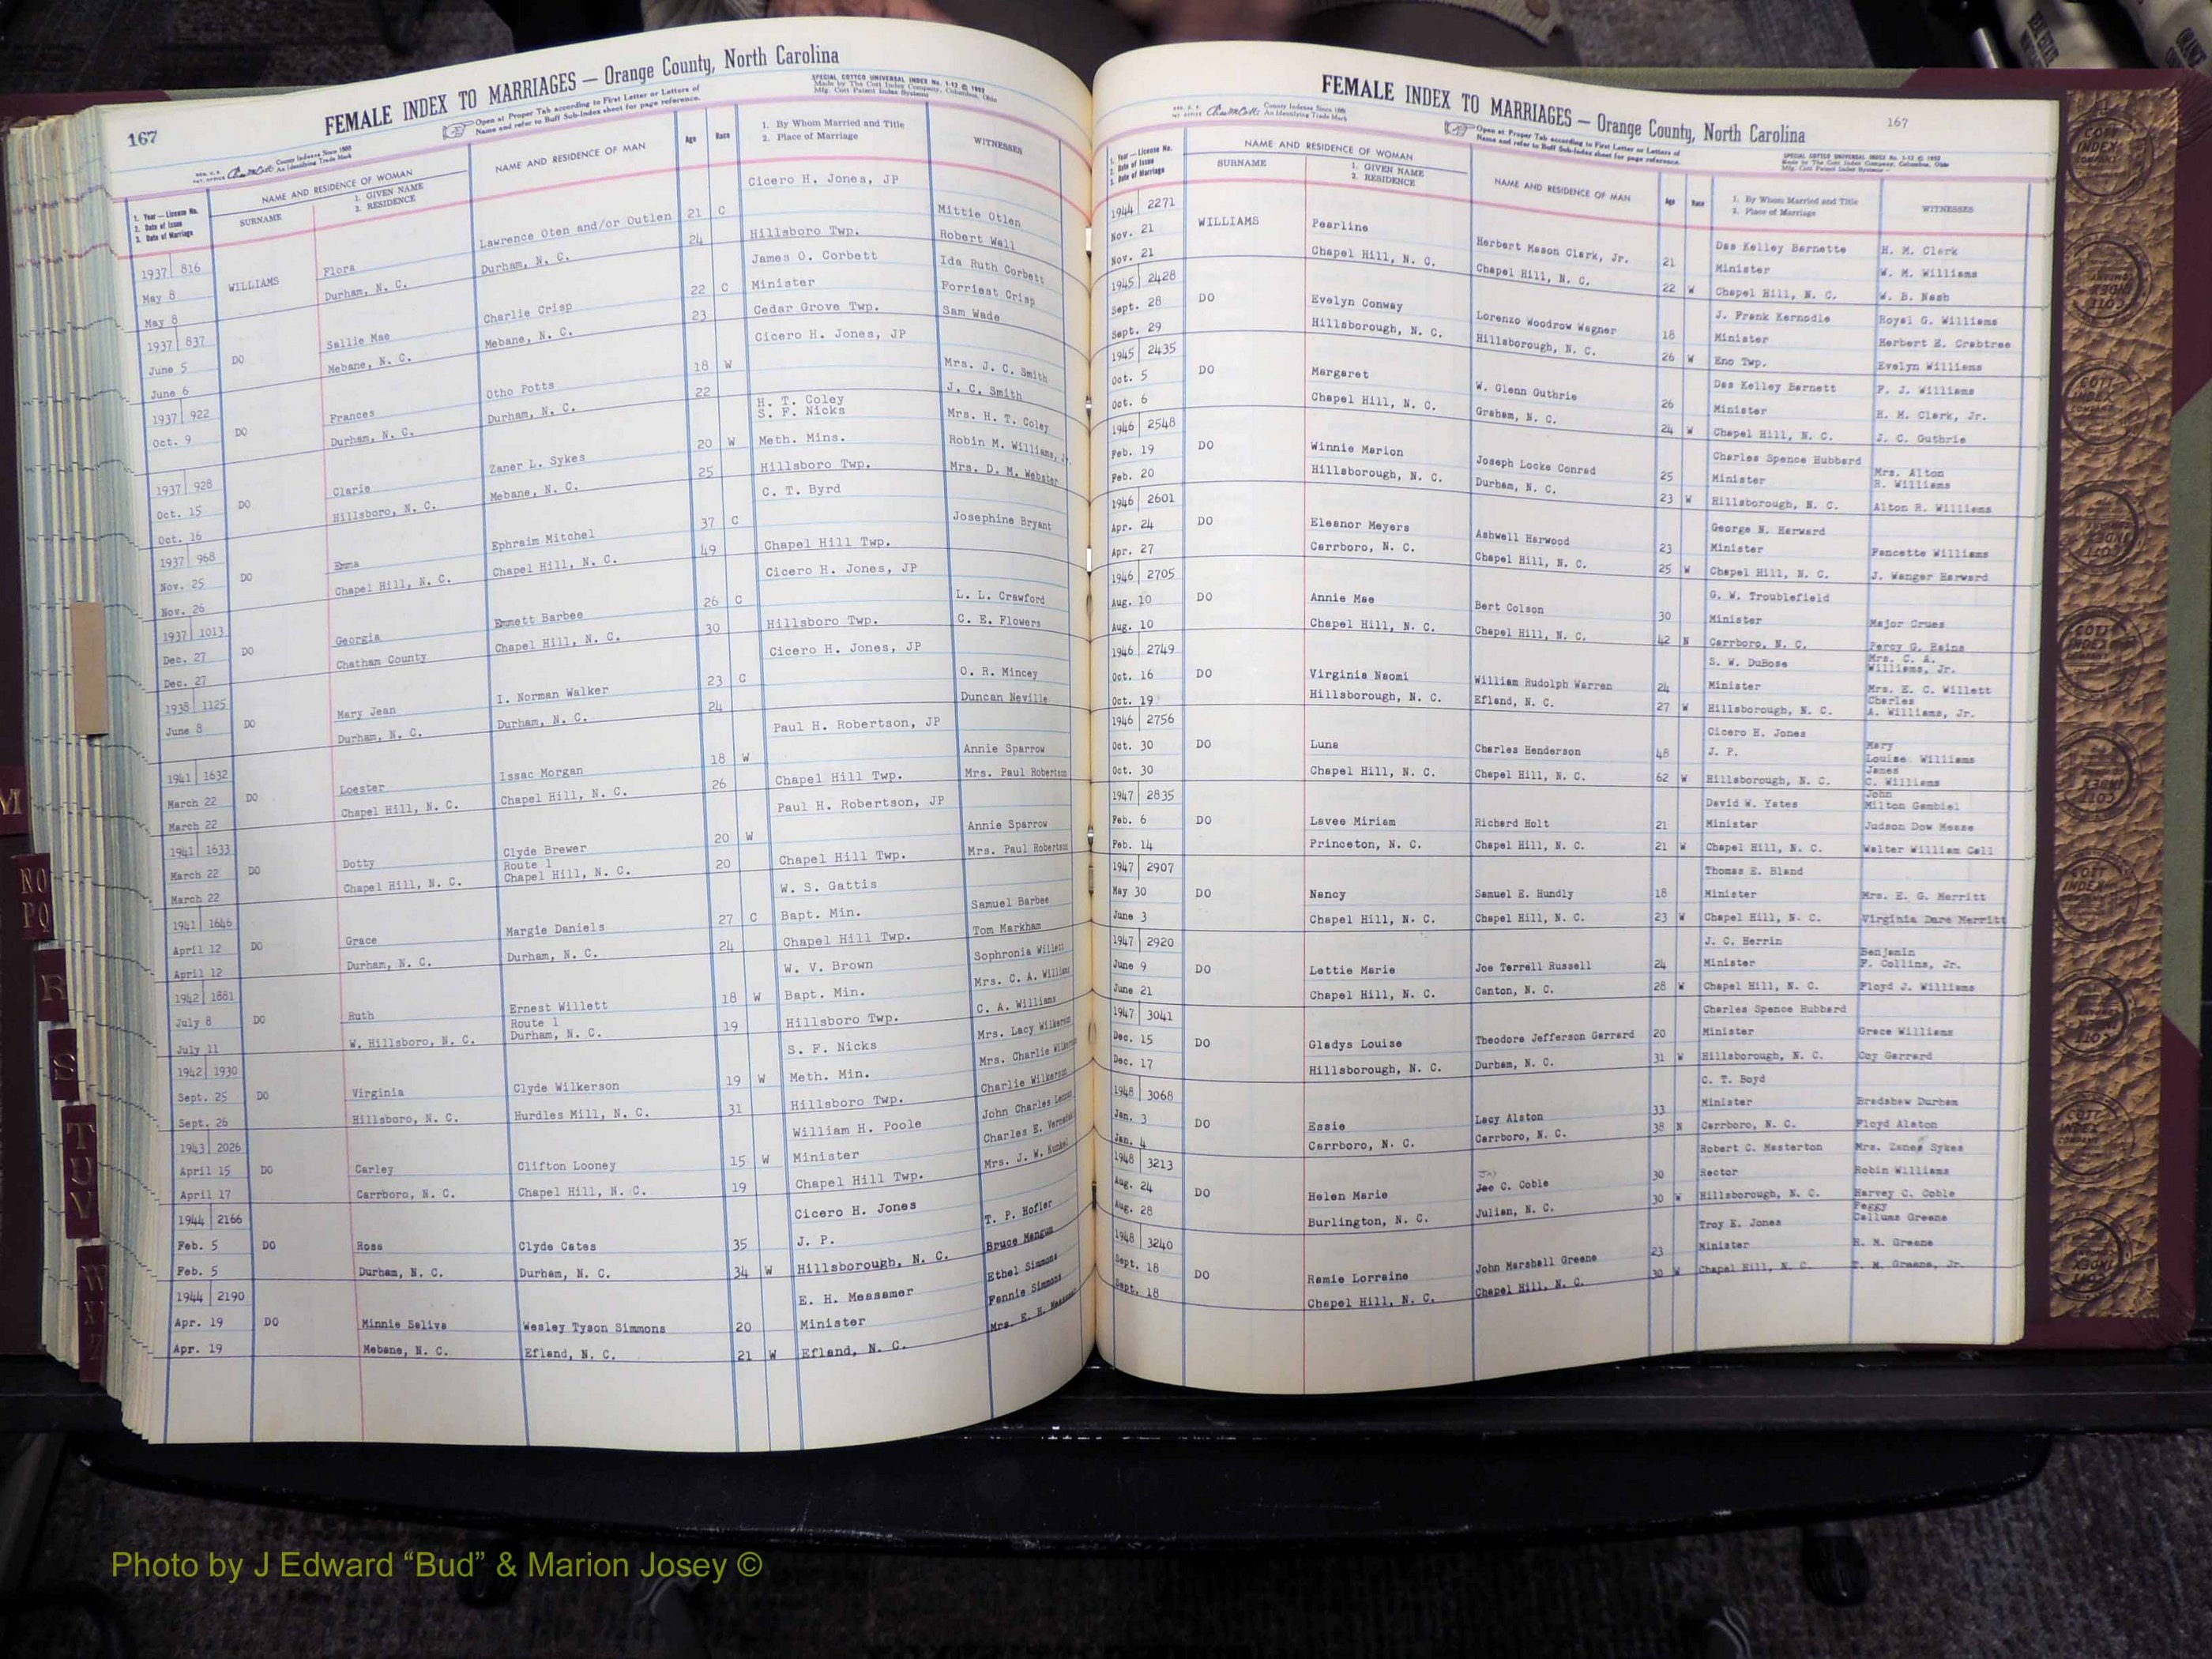 167
FEMALE INDEX TO MARRIAGES — Orange County, North Carolina
Open at Proper Tab according to First Letter or Letters of
Name and refer to Buff Sub-Index sheet for page reference.
SPECIAL COTTCO UNIVERSAL INDEX No. 1-12 © 1952
Made by The Cott Index Company, Columbus, Ohio
Mfg. Cott Patent Index Systems
County Indexes Since 1888
An Identifying Trade Mark
1. Year — License No.
2. Date of Issue
3. Date of Marriage
NAME AND RESIDENCE OF WOMAN
SURNAME
1. GIVEN NAME
2. RESIDENCE
NAME AND RESIDENCE OF MAN
Age
Race
1. By Whom Married and Title
2. Place of Marriage
WITNESSES
Cicero H. Jones, JP
1937 816 Flora Lawrence Oten and/or Outlen 21 C Mittie Otlen
May 8 WILLIAMS Durham, N. C. Durham, N. C. 24 Hillsboro Twp. Robert Wall
May 8 James O. Corbett Ida Ruth Corbett
1937 837 Sallie Mae Charlie Crisp 22 C Minister Forriest Crisp
June 5 DO Mebane, N. C. Mebane, N. C. 23 Cedar Grove Twp. Sam Wade
June 6 Cicero H. Jones, JP
1937 922 Frances Otho Potts 18 W Mrs. J. C. Smith
Oct. 9 DO Durham, N. C. Durham, N. C. 22 J. C. Smith
H. T. Coley
S. F. Nicks Mrs. H. T. Coley
1937 928 Clarie Zaner L. Sykes 20 W Meth. Mins. Robin M. Williams, Jr.
Oct. 15 DO Hillsboro, N. C. Mebane, N. C. 25 Hillsboro Twp. Mrs. D. M. Webster
Oct. 16 C. T. Byrd
1937 968 Emma Ephraim Mitchel 37 C Josephine Bryant
Nov. 25 DO Chapel Hill, N. C. Chapel Hill, N. C. 49 Chapel Hill Twp.
Nov. 26 Cicero H. Jones, JP
1937 1013 Georgia Emmett Barbee 26 C L. L. Crawford
Dec. 27 DO Chatham County Chapel Hill, N. C. 30 Hillsboro Twp. C. E. Flowers
Dec. 27 Cicero H. Jones, JP
1938 1125 Mary Jean I. Norman Walker 23 C O. R. Mincey
June 8 DO Durham, N. C. Durham, N. C. 24 Duncan Neville
Paul H. Robertson, JP
1941 1632 Loester Issac Morgan 18 W Annie Sparrow
March 22 DO Chapel Hill, N. C. Chapel Hill, N. C. 26 Chapel Hill Twp. Mrs. Paul Robertson
March 22 Paul H. Robertson, JP
1941 1633 Dotty Clyde Brewer 20 W Annie Sparrow
March 22 DO Chapel Hill, N. C. Route 1
Chapel Hill, N. C. 20 Chapel Hill Twp. Mrs. Paul Robertson
March 22 W. S. Gattis
1941 1646 Grace Margie Daniels 27 C Bapt. Min. Samuel Barbee
April 12 DO Durham, N. C. Durham, N. C. 24 Chapel Hill Twp. Tom Markham
April 12 W. V. Brown Sophronia Willett
1942 1881 Ruth Ernest Willett 18 W Bapt. Min. Mrs. C. A. Williams
July 8 DO W. Hillsboro, N. C. Route 1
Durham, N. C. 19 Hillsboro Twp. C. A. Williams
July 11 S. F. Nicks Mrs. Lacy Wilkerson
1942 1930 Virginia Clyde Wilkerson 19 W Meth. Min. Mrs. Charlie Wilkerson
Sept. 25 DO Hillsboro, N. C. Hurdles Mill, N. C. 31 Hillsboro Twp. Charlie Wilkerson
Sept. 26 William H. Poole John Charles
1943 2026 Carley Clifton Looney 15 W Minister Charles E.
April 15 DO Carrboro, N. C. Chapel Hill, N. C. 19 Chapel Hill Twp. Mrs. J. W. Kunkel
April 17
1944 2166 Cicero H. Jones T. P. Hofler
Feb. 5 DO Rosa Clyde Cates 35 J. P. Bruce Mangum
Feb. 5 Durham, N. C. Durham, N. C. 34 W Hillsborough, N. C. Ethel Simmons
1944 2190 E. H. Measamer Fannie Simmons
Apr. 19 DO Minnie Saliva Wesley Tyson Simmons 20 Minister Mrs. E. H.
Apr. 19 Mebane, N. C. Efland, N. C. 21 W Efland, N. C.
FEMALE INDEX TO MARRIAGES — Orange County, North Carolina
167
County Indexes Since 1888
An Identifying Trade Mark
Open at Proper Tab according to First Letter or Letters of
Name and refer to Buff Sub-Index sheet for page reference.
SPECIAL COTTCO UNIVERSAL INDEX No. 1-12 © 1952
Made by The Cott Index Company, Columbus, Ohio
Mfg. Cott Patent Index Systems
1. Year — License No.
2. Date of Issue
3. Date of Marriage
NAME AND RESIDENCE OF WOMAN
SURNAME
1. GIVEN NAME
2. RESIDENCE
NAME AND RESIDENCE OF MAN
Age
Race
1. By Whom Married and Title
2. Place of Marriage
WITNESSES
1944 2271 Das Kelley Barnette H. M. Clark
Nov. 21 WILLIAMS Pearline Herbert Mason Clark, Jr. 21 Minister W. M. Williams
Nov. 21 Chapel Hill, N. C. Chapel Hill, N. C. 22 W Chapel Hill, N. C. W. B. Nash
1945 2428 J. Frank Kernodle Royal G. Williams
Sept. 28 DO Evelyn Conway Lorenzo Woodrow Wagner 18 Minister Herbert E. Crabtree
Sept. 29 Hillsborough, N. C. Hillsborough, N. C. 26 W Eno Twp. Evelyn Williams
1945 2435 Das Kelley Barnett F. J. Williams
Oct. 5 DO Margaret W. Glenn Guthrie 26 Minister H. M. Clark, Jr.
Oct. 6 Chapel Hill, N. C. Graham, N. C. 24 W Chapel Hill, N. C. J. C. Guthrie
1946 2548 Charles Spence Hubbard
Feb. 19 DO Winnie Marion Joseph Locke Conrad 25 Minister Mrs. Alton
R. Williams
Feb. 20 Hillsborough, N. C. Durham, N. C. 23 W Hillsborough, N. C. Alton R. Williams
1946 2601 George N. Harward
Apr. 24 DO Eleanor Meyers Ashwell Harwood 23 Minister Fancette Williams
Apr. 27 Carrboro, N. C. Chapel Hill, N. C. 25 W Chapel Hill, N. C. J. Wanger Harward
1946 2705 G. W. Troublefield
Aug. 10 DO Annie Mae Bert Colson 30 Minister Major Crues
Aug. 10 Chapel Hill, N. C. Chapel Hill, N. C. 42 N Carrboro, N. C. Percy G. Rains
1946 2749 S. W. DuBose Mrs. C. A.
Williams, Jr.
Oct. 16 DO Virginia Naomi William Rudolph Warren 24 Minister Mrs. E. C. Willett
Oct. 19 Hillsborough, N. C. Efland, N. C. 27 W Hillsborough, N. C. Charles
A. Williams, Jr.
1946 2756 Cicero H. Jones
Oct. 30 DO Luna Charles Henderson 48 J. P. Mary
Louise Williams
Oct. 30 Chapel Hill, N. C. Chapel Hill, N. C. 62 W Hillsborough, N. C. James
C. Williams
1947 2835 David W. Yates John
Milton Gambiel
Feb. 6 DO Lavee Miriam Richard Holt 21 Minister Judson Dow Mease
Feb. 14 Princeton, N. C. Chapel Hill, N. C. 21 W Chapel Hill, N. C. Walter William Call
1947 2907 Thomas E. Bland
May 30 DO Nancy Samuel E. Hundly 18 Minister Mrs. E. G. Merritt
June 3 Chapel Hill, N. C. Chapel Hill, N. C. 23 W Chapel Hill, N. C. Virginia Dare Merritt
1947 2920 J. C. Herrin
June 9 DO Lettie Marie Joe Terrell Russell 24 Minister Benjamin
F. Collins, Jr.
June 21 Chapel Hill, N. C. Canton, N. C. 28 W Chapel Hill, N. C. Floyd J. Williams
1947 3041 Charles Spence Hubbard
Dec. 15 DO Gladys Louise Theodore Jefferson Garrard 20 Minister Grace Williams
Dec. 17 Hillsborough, N. C. Durham, N. C. 31 W Hillsborough, N. C. Coy Garrard
1948 3068 C. T. Boyd
Jan. 3 DO Essie Lacy Alston 33 Minister Bradshaw Durham
Jan. 4 Carrboro, N. C. Carrboro, N. C. 38 N Carrboro, N. C. Floyd Alston
1948 3213 Robert C. Masterton Mrs. Zane Sykes
Aug. 24 DO Helen Marie C. Coble 30 Rector Robin Williams
Aug. 28 Burlington, N. C. Julian, N. C. 30 W Hillsborough, N. C. Harvey C. Coble
1948 3240 Troy E. Jones Peggy
Callums Greene
Sept. 18 DO Ramie Lorraine John Marshall Greene 23 Minister H. M. Greene
Sept. 18 Chapel Hill, N. C. Chapel Hill, N. C. 30 W Chapel Hill, N. C. T. M. Greene, Jr.
M
NO
PQ
R
S
T
U
V
W
Photo by J Edward “Bud” & Marion Josey ©